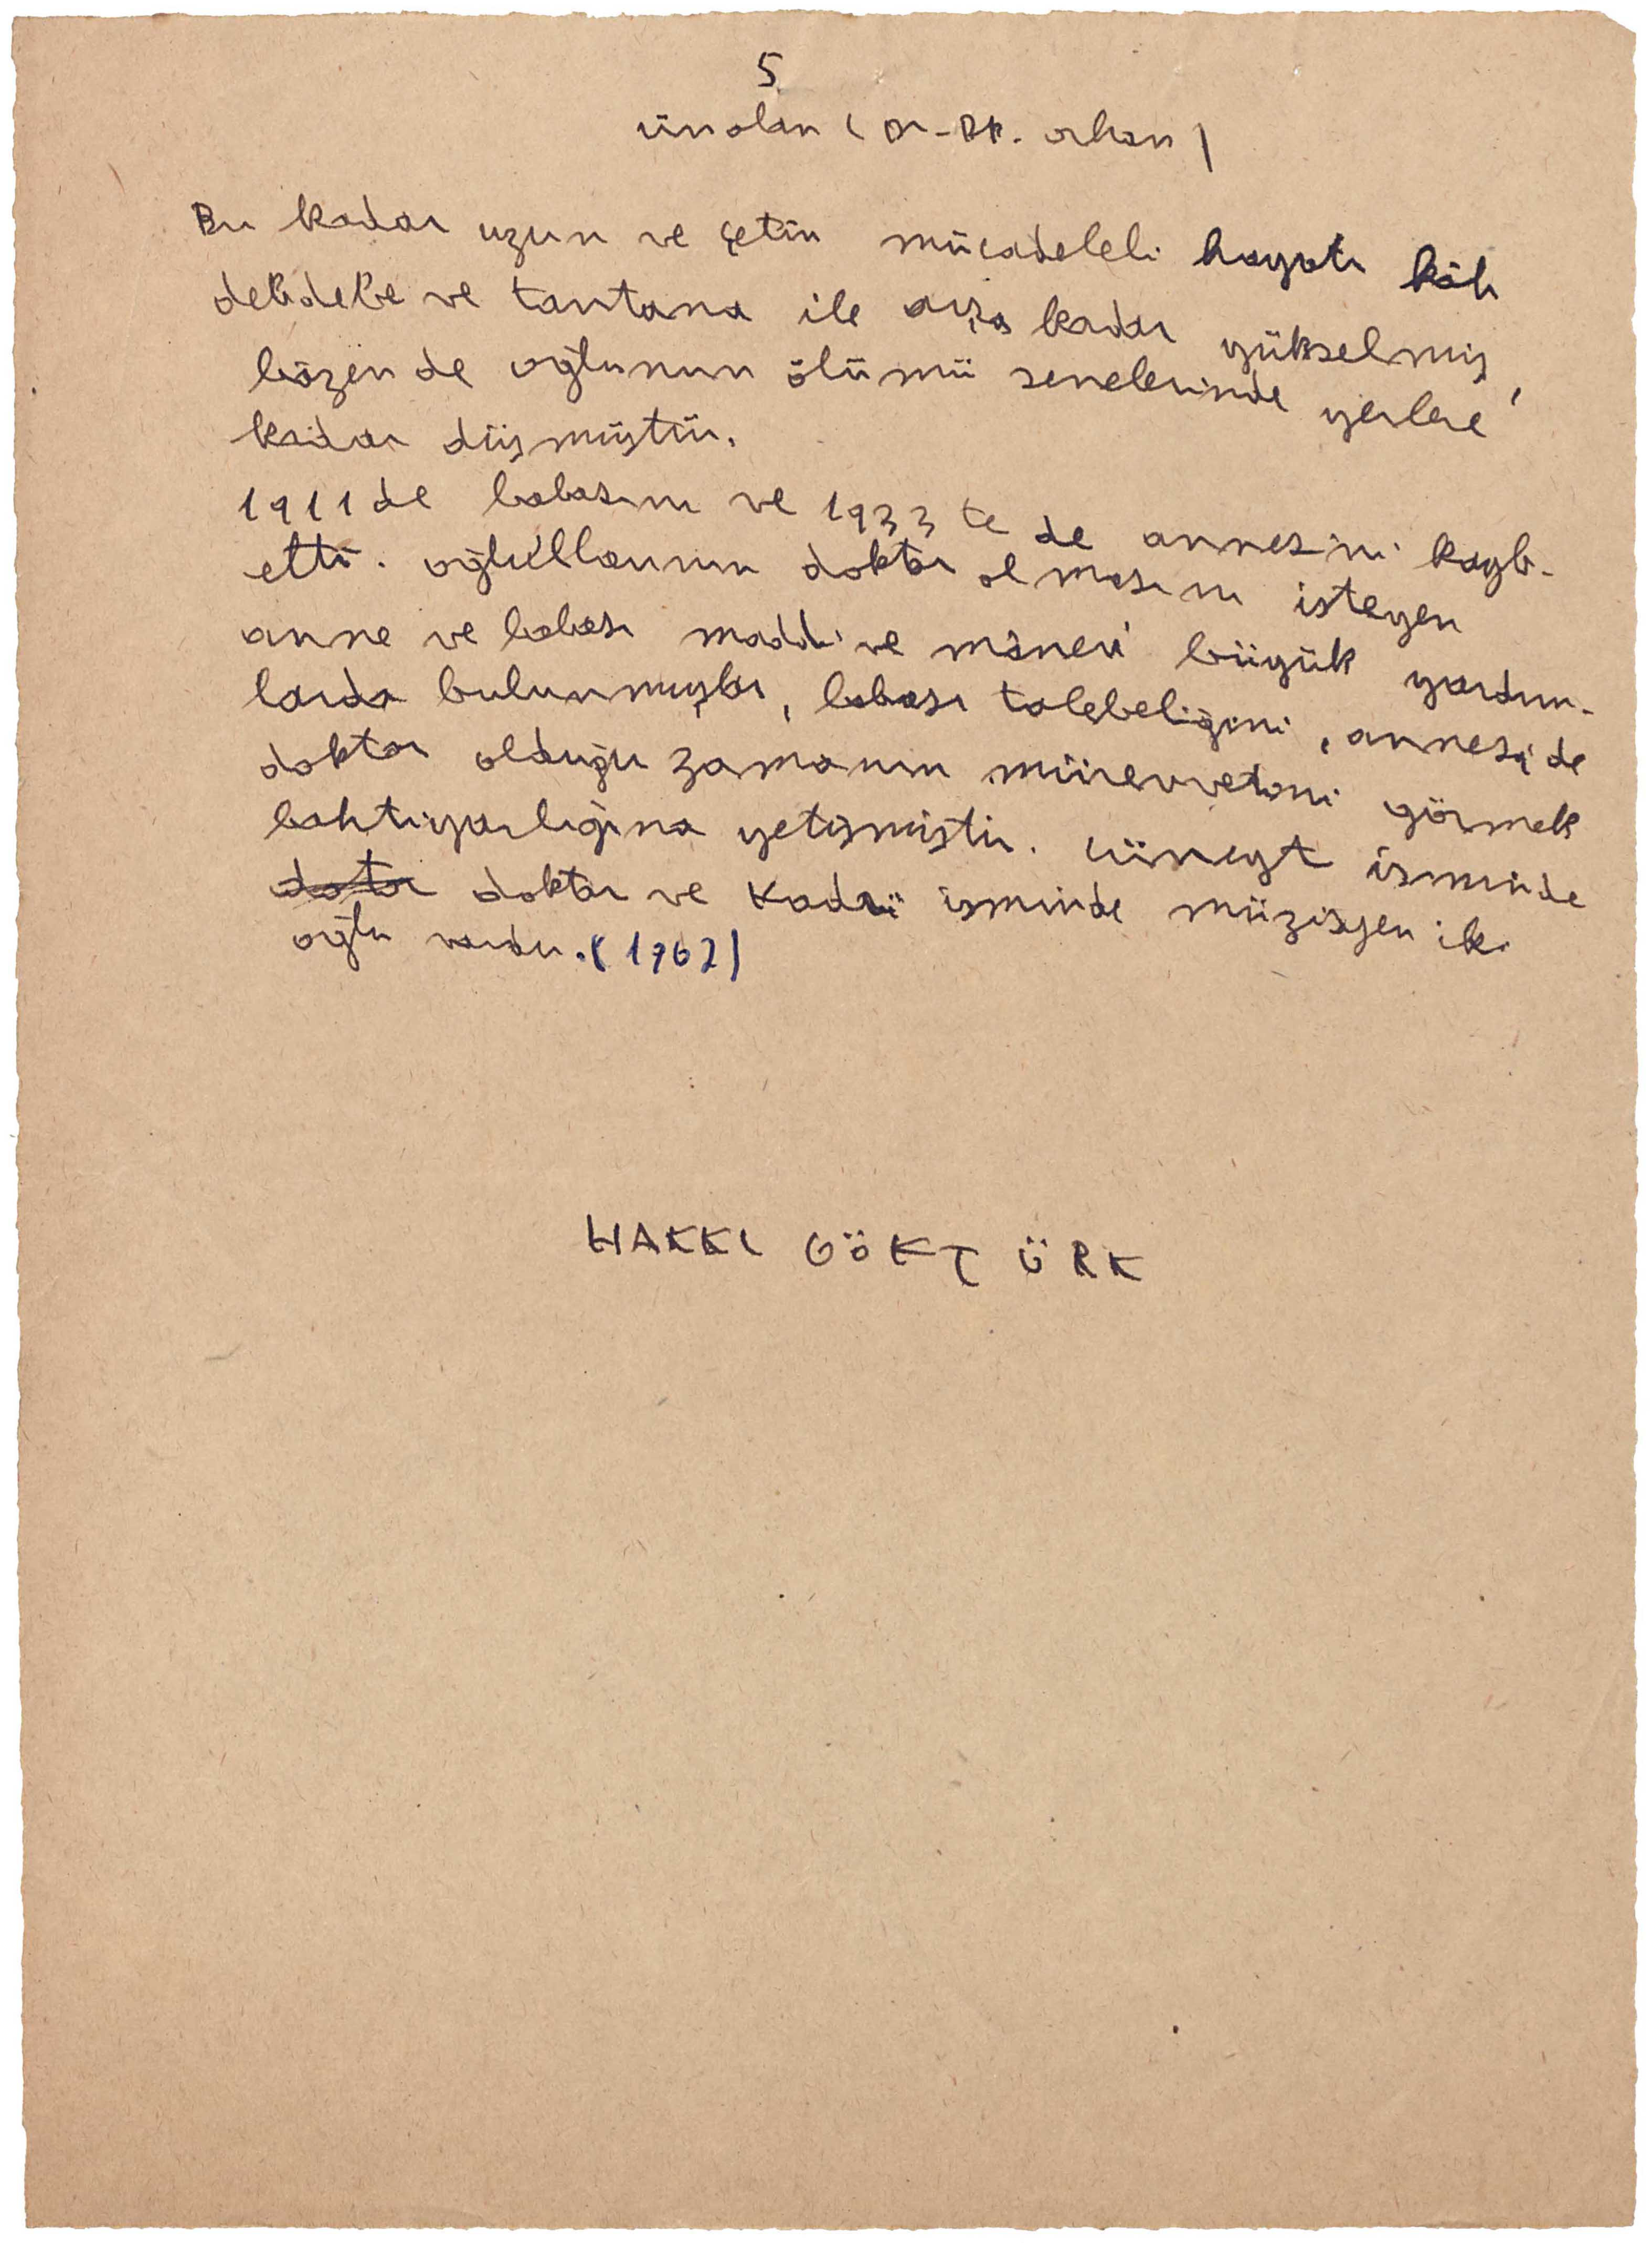 5
ünalan ( Dr-Bk. orhan )
Bu kadar uzun ve çetin mücadeleli hayatı kâh
debdebe ve tantana ile arşa kadar yükselmiş,
bâzen de oğlunun ölümü senelerinde yerlere
kadar düşmüştür.
1911 de babasını ve 1933 te de annesini kayb-
etti. oğullarının doktor olmasını isteyen
anne ve babası maddi ve mânevi büyük yardım-
larda bulunmuşlar, babası talebeliğini, annesi de
doktor olduğu zamanın mürevvetini görmek
bahtiyarlığına yetişmiştir. cüneyt isminde
doktor ve Kadri isminde müzisyen iki
oğlu vardır. (1962)
HAKKI GÖKTÜRK